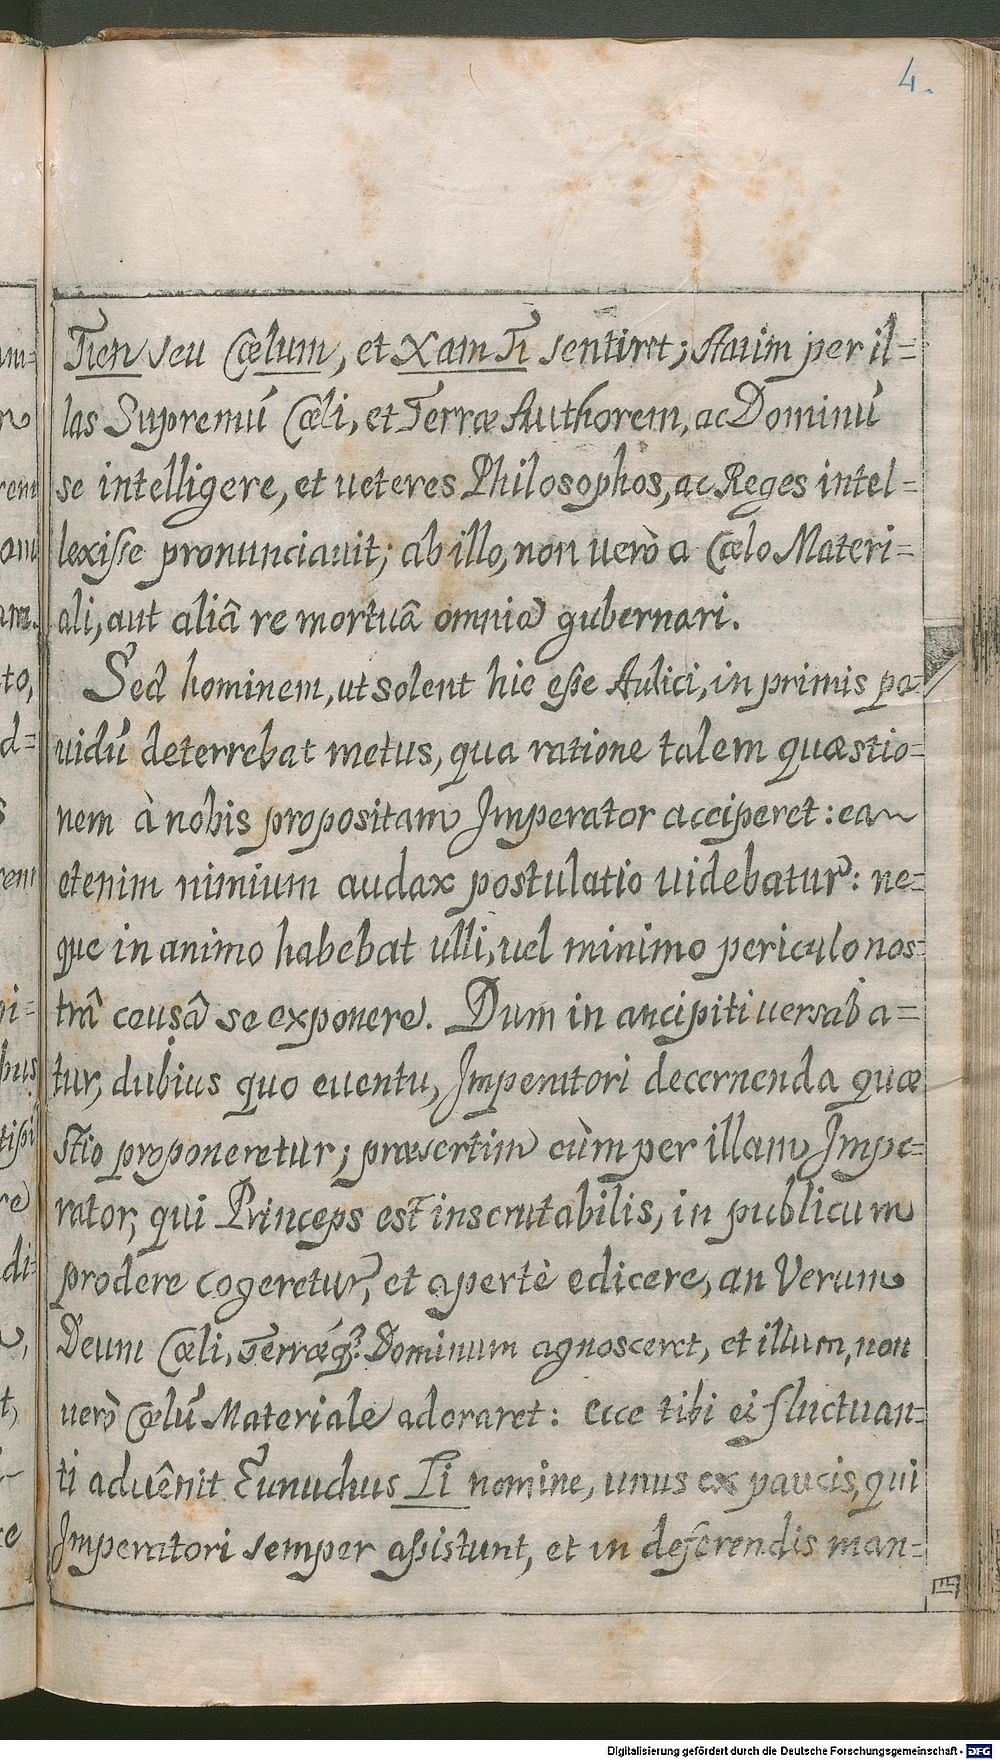 4.
Tien seu Cœlum, et Xam Ti sentiret; statim per il=
las Supremū Cœli, et Terræ Authorem, ac Dominū
se intelligere, et ueteres Philosophos, ac Reges intel=
lexisse pronunciauit; ab illo, non uerò a Cœlo Materi=
ali, aut aliâ re mortuâ omnia gubernari.
Sed hominem, ut solent hic esse Aulici, in primis pa=
uidū deterrebat metus, qua ratione talem quæstio=
nem à nobis propositam Imperator acciperet: ea
etenim nimium audax postulatio uidebatur: ne=
que in animo habebat ulli, uel minimo periculo nos=
trâ causâ se exponere. Dum in ancipiti uersaba=
tur, dubius quo euentu, Imperatori decernenda quæ
stio proponeretur; præsertim cùm per illam Impe=
rator, qui Princeps est inscrutabilis, in publicum
prodere cogeretur, et apertè edicere, an Verum
Deum Cœli, Terræq; Dominum agnosceret, et illum, non
uerò Cœlū Materiale adoraret: ecce tibi ei fluctuan=
ti aduênit Eunuchus Li nomine, unus ex paucis, qui
Imperatori semper assistunt, et in deferendis man=
Digitalisierung gefördert durch die Deutsche Forschungsgemeinschaft - DFG